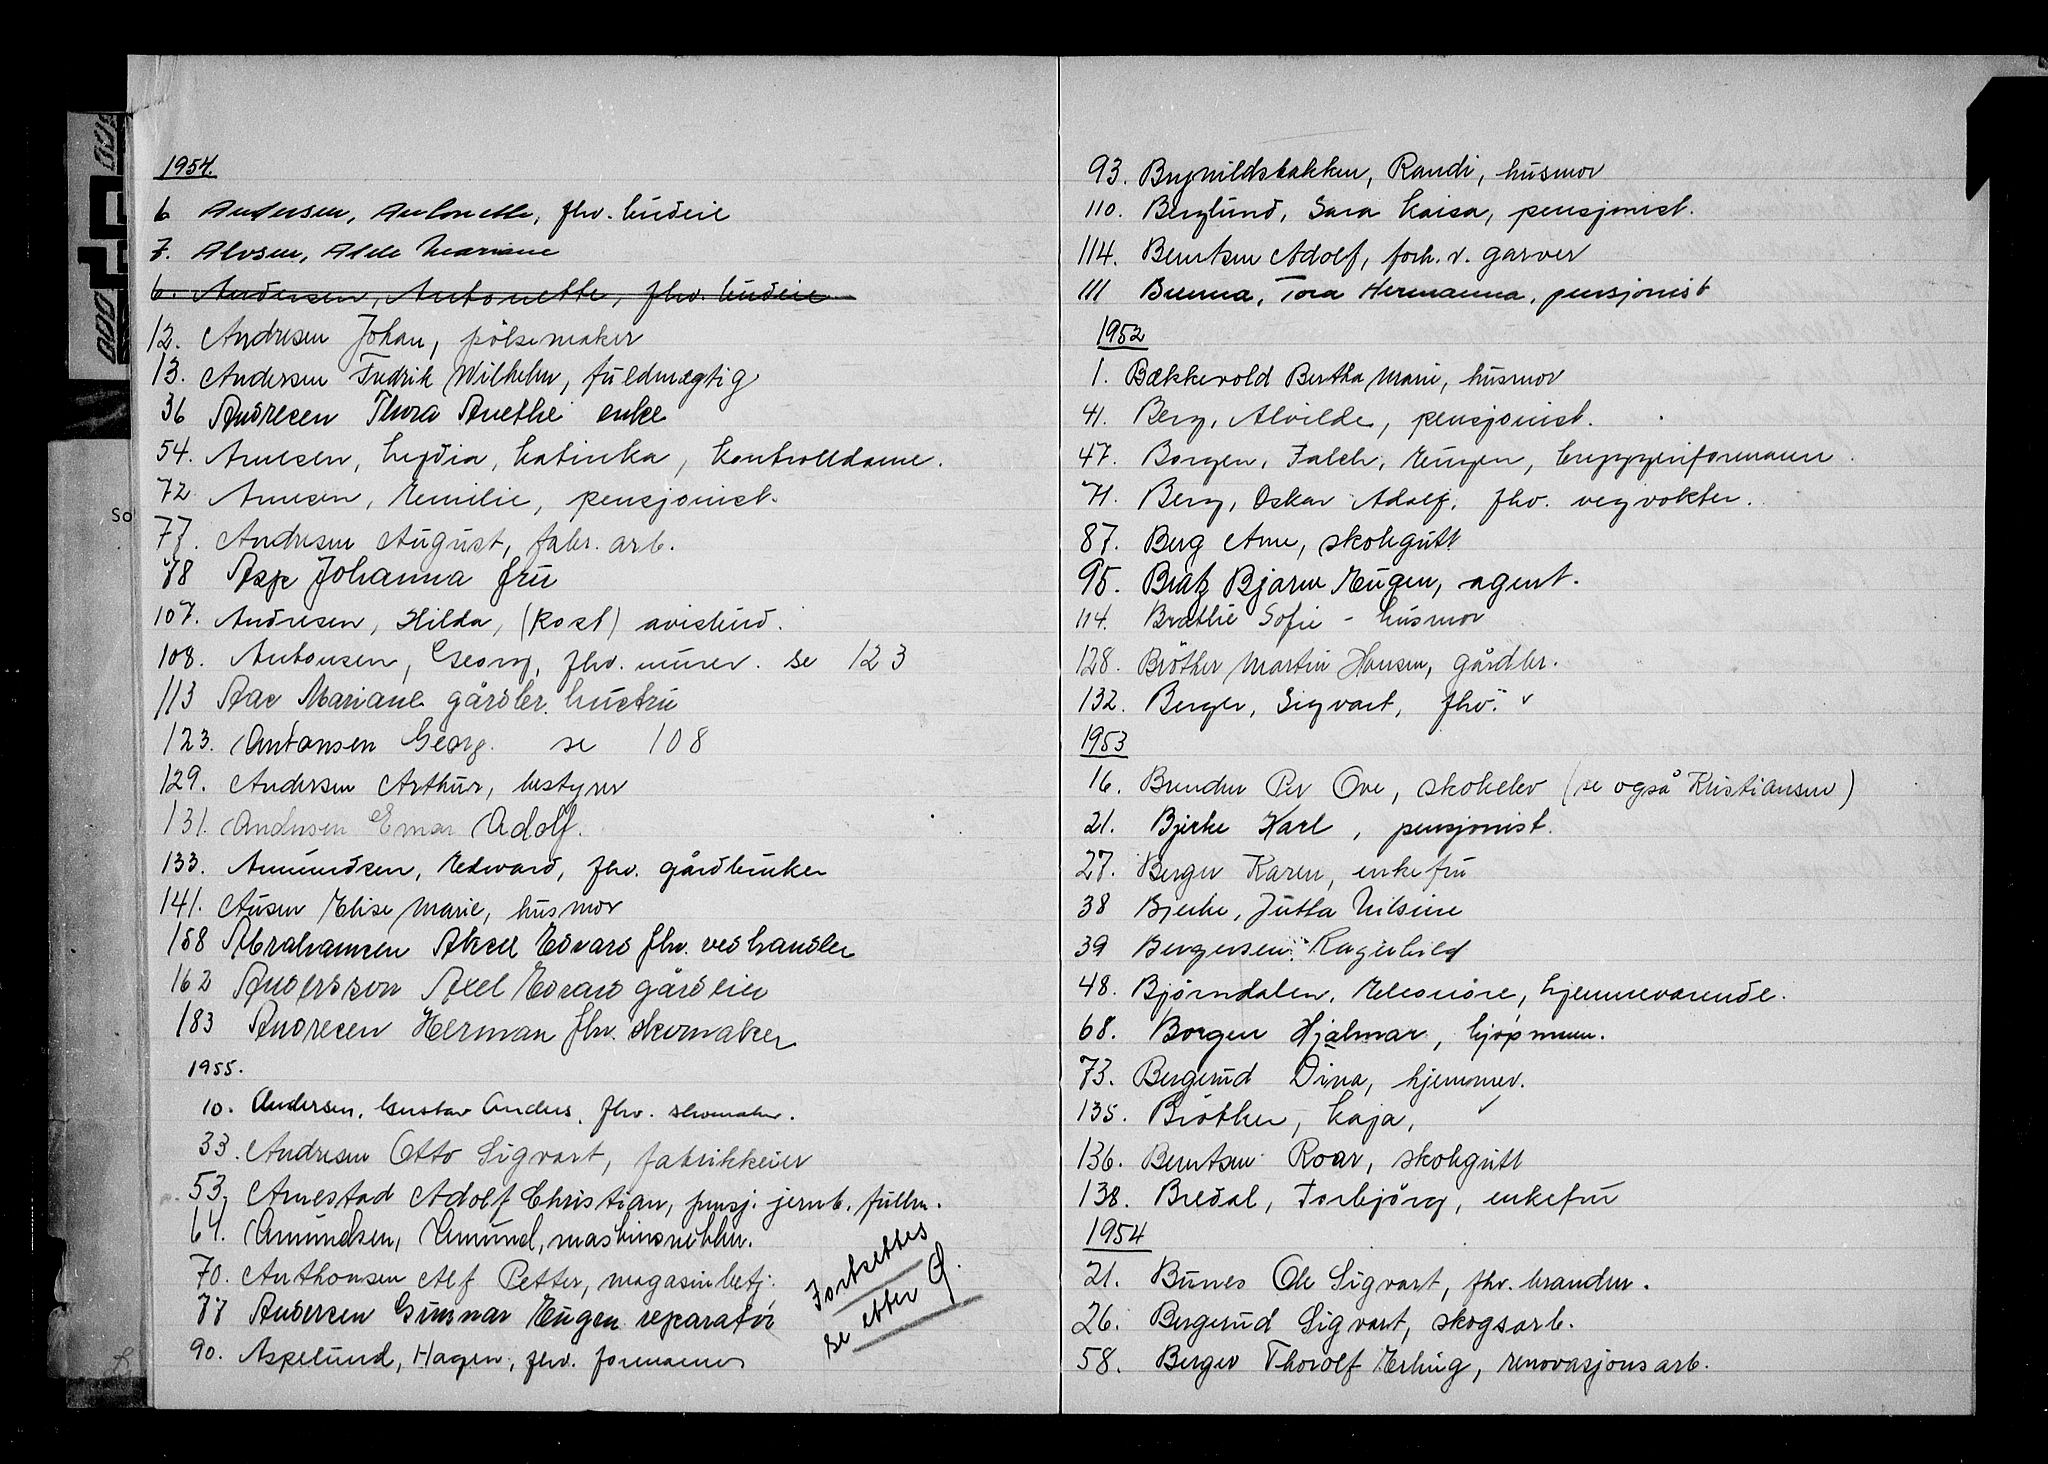 1954.
6 Andersen, Antonette, fhv. budeie
7. Alvsen, Adele Mariane
6. Andersen, Antonette, fhv. budeie
12. Andresen Johan, pölsemaker
13. Andersen Fredrik Wilhelm, fuldmægtig
36 Andresen Thora Anethe enke
54. Arnesen, Lydia, Katinka, Kontrolldame.
72. Arnesen, Emilie, pensjonist.
77. Andresen August, fabr. arb.
78 Asp Johanna fru
107. Andresen, Hilda, (Rost) avisbud.
108. Antonsen, Georg, fhv. murer. se 123
113 Aas Mariane gårdbr. hustru
123. Antonsen Georg. se 108
129. Andersen Arthur, bestyrer
131. Andersen Einar Adolf.
133. Amundsen, Edward, fhv. gårdbruker
141. Ausen Elise Marie, husmor
158 Abrahamsen Aksel Edvard fhv. vedhandler
162 Andersson Axel Edvard gårdeier
183 Andresen Herman fhv. skomaker
1955.
10. Andersen, Gustav Anders, fhv. skomaker.
33. Andresen Otto Sigvart, fabrikkeier
53. Arnestad Adolf Christian, pensj. jernb. fullm.
64. Amundsen, Amund, maskinsnekker.
70. Anthonsen Alf Petter, magasinbetj.
77 Andersen Gunnar Eugen reparatör
90. Aspelund, Hagen, fhv. formann
Fortsettes
se etter
93. Brynildsbakken, Randi, husmor
110. Berglund, Sara Kaisa, pensjonist.
114. Berntsen Adolf, forh. v. garver
111 Brenna, Tora Hermanna, pensjonist
1952
1. Bækkevold Bertha Marie, husmor
41. Berg, Alvilde, pensjonist.
47. Borgen, Falch, Eugen, bryggeriformann.
71. Berg, Oskar Adolf, fhv. vegvokter.
87. Berg Arne, skolegutt
95. Bratz Bjarne Eugen, agent.
114. Brathe Sofie - husmor
128. Bröther Martin Hansen, gårdbr.
132. Berger, Sigvart, fhv.
1953
16. Brenden Per Ove, skoleelev (se også Kristiansen)
21. Bjerke Karl, pensjonist.
27. Berger Karen, enkefru
38 Bjerke, Jutta Nilsine
39 Bergersen, Ragnhild
48. Bjørndalen, Eleonöre, hjemmeværende.
68. Borgen Hjalmar, kjøpmann.
73. Bergerud Dina, hjemmev.
135. Bröther, Kaja,
136. Berntsen Roar, skolegutt
138. Bredal, Torbjörg, enkefru
1954
21. Bunes Ole Sigvart, fhv. brandm.
26. Bergerud Sigvart, skogsarb.
58. Berger Thorolf Erling, renovasjonsarb.